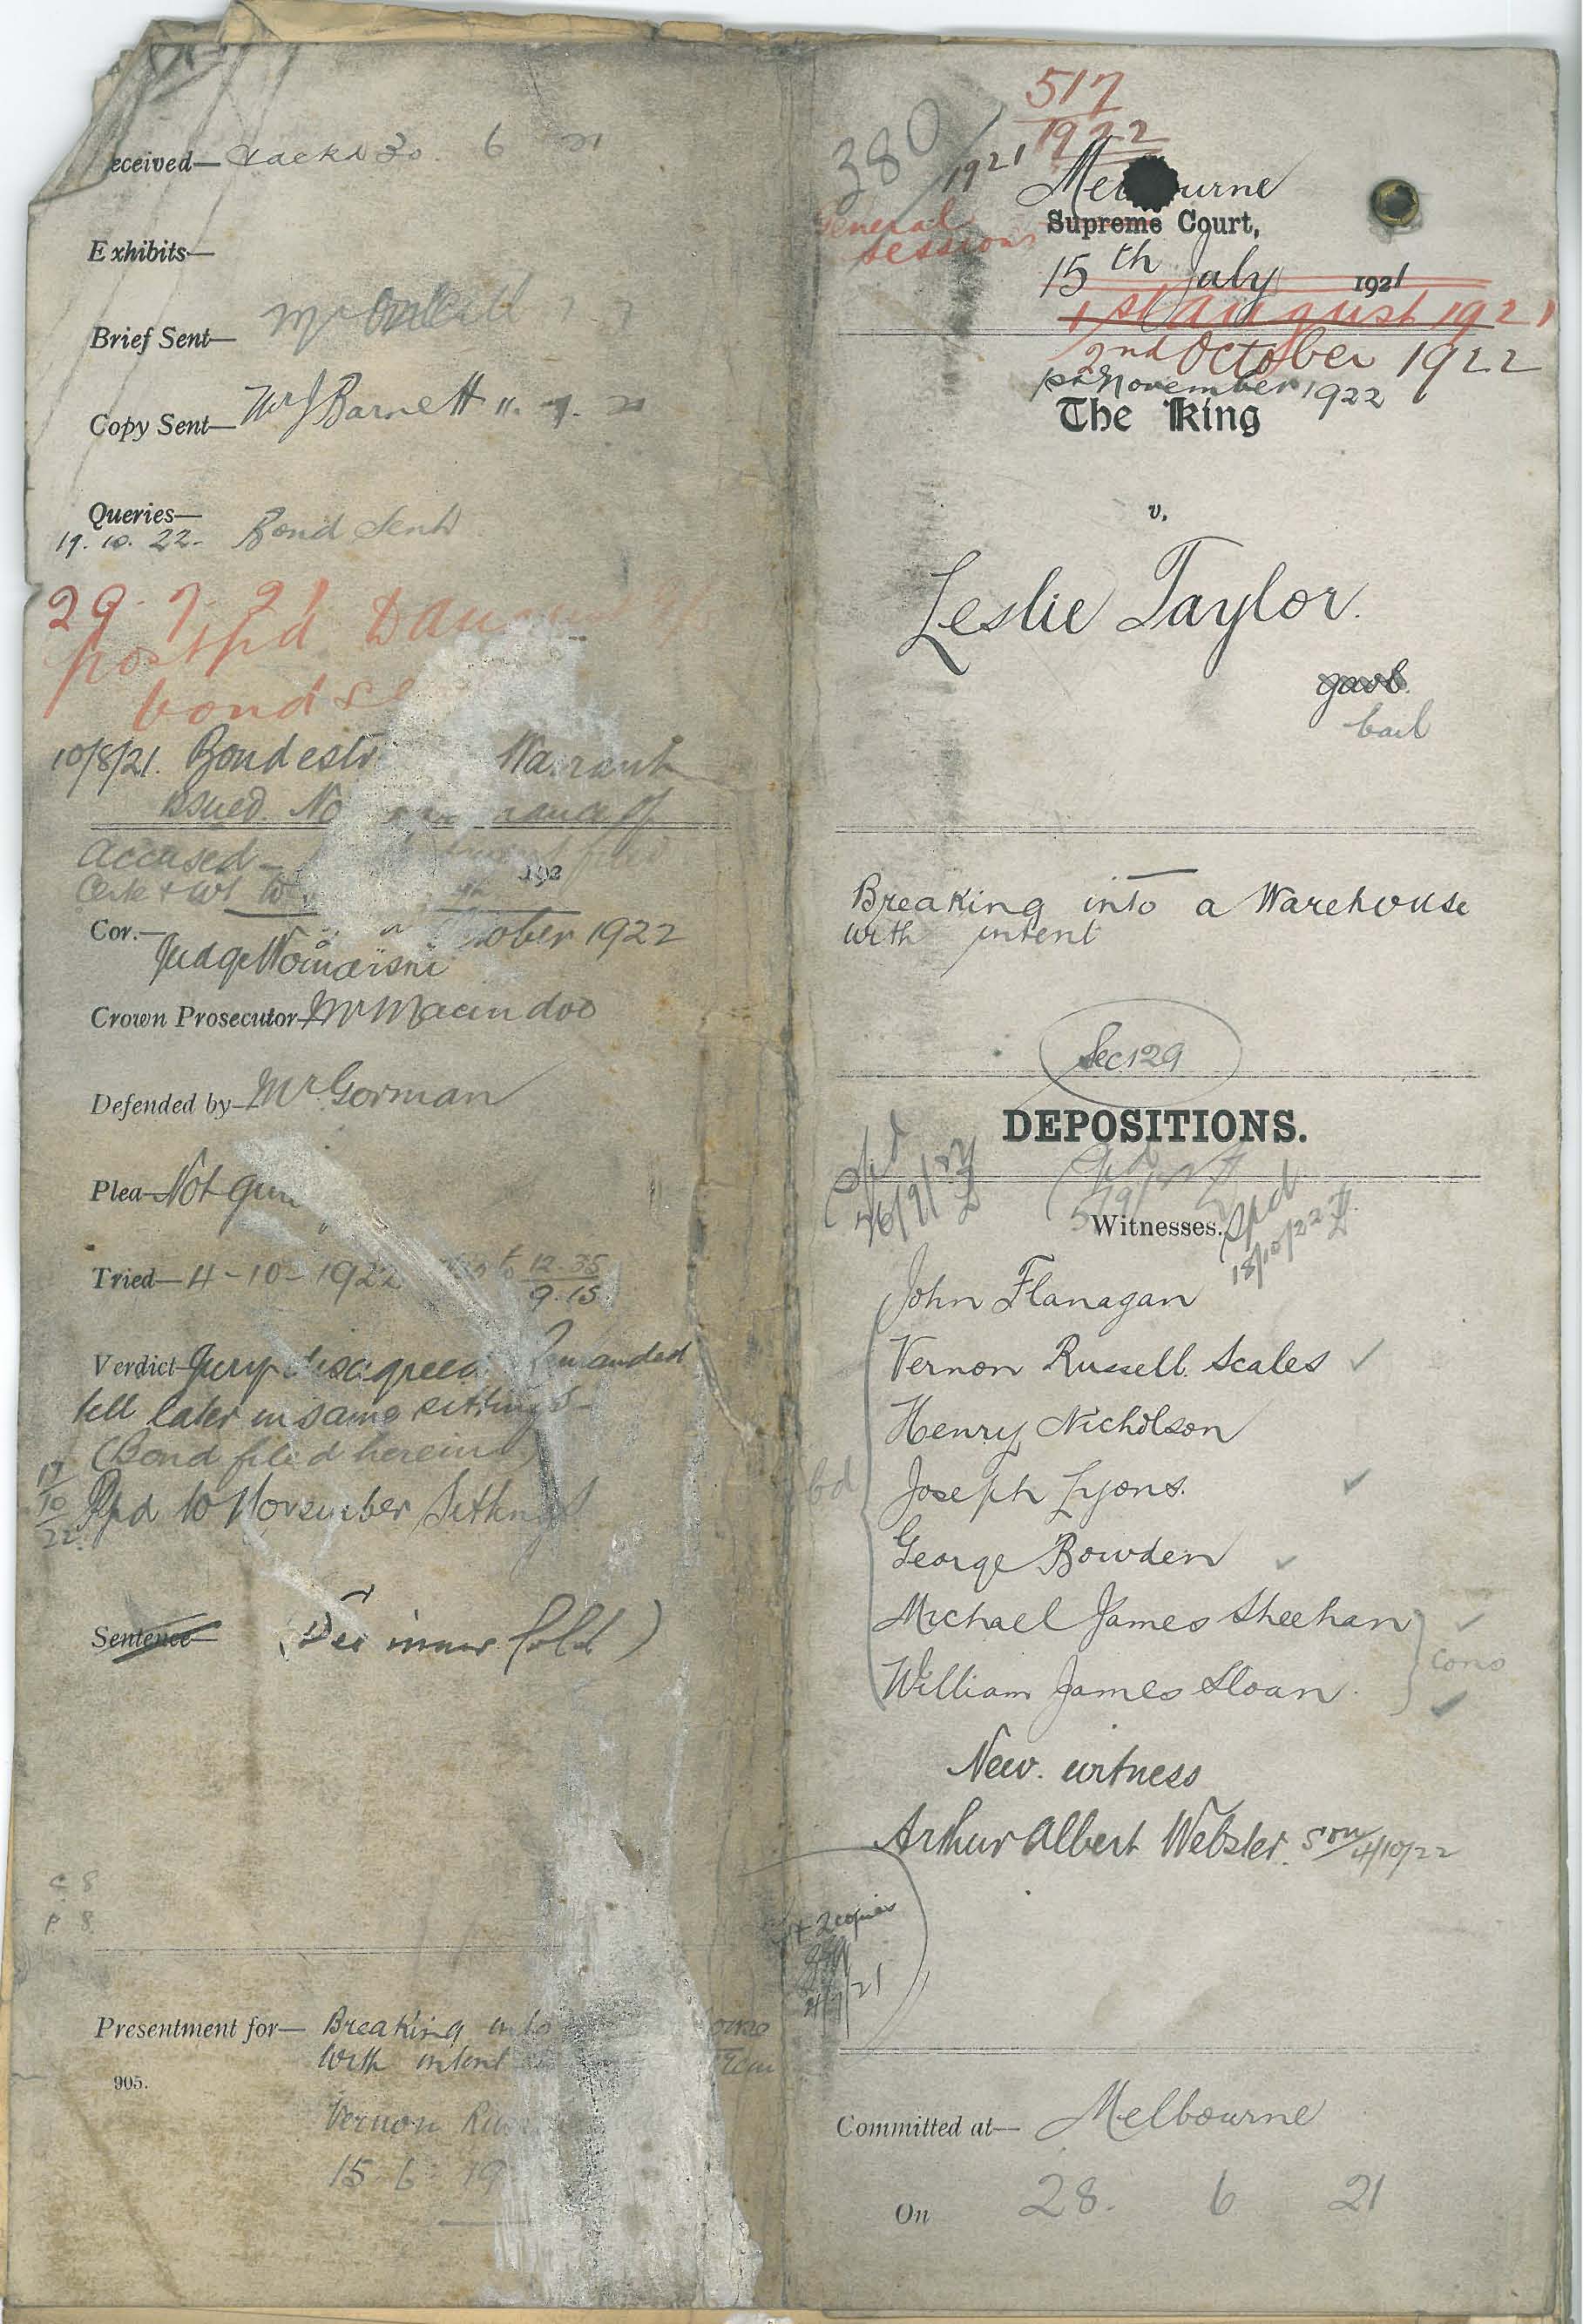 eceived— 30. 6 21
Exhibits—
Brief Sent—
Copy Sent— Mr J Barnett 11. 7. 21
Queries—
19. 10. 22. Bond Sent
29. 7. 21
postpd
bond se
10/8/21. Bond estr Warrant
issued. No rance of
Accused—
192
Cor.— ober 1922
Judge
Crown Prosecutor— Mr Macindoe
Defended by— Mr Gorman
Plea— Not gui
Tried— 4-10-1922 to 12.35
9.15
Verdict— Jury disagreed. Remanded
till later in same sittings—
(Bond filed herein)
17/10/22 Ppd to November Sittings
Sentence— (See inner fold)
C 8
P 8
Presentment for— Breaking into ouse
with intent
905.
Vernon Rus
15. 6. 19
517
1922
380/1921
Melbourne
General
Sessions
Supreme Court,
15th July 1921
1st August 1921
2nd October 1922
1st November 1922
The King
v.
Leslie Taylor.
gaol.
bail
Breaking into a Warehouse
with intent
Sec 129
DEPOSITIONS.
Witnesses.
18/10/22
John Flanagan
Vernon Russell Scales
Henry Nicholson
bd
Joseph Lyons.
George Bowden
Michael James Sheehan
Cons
William James Sloan.
New witness
Arthur Albert Webster. 4/10/22
2 copies
Committed at— Melbourne
On 28. 6 21